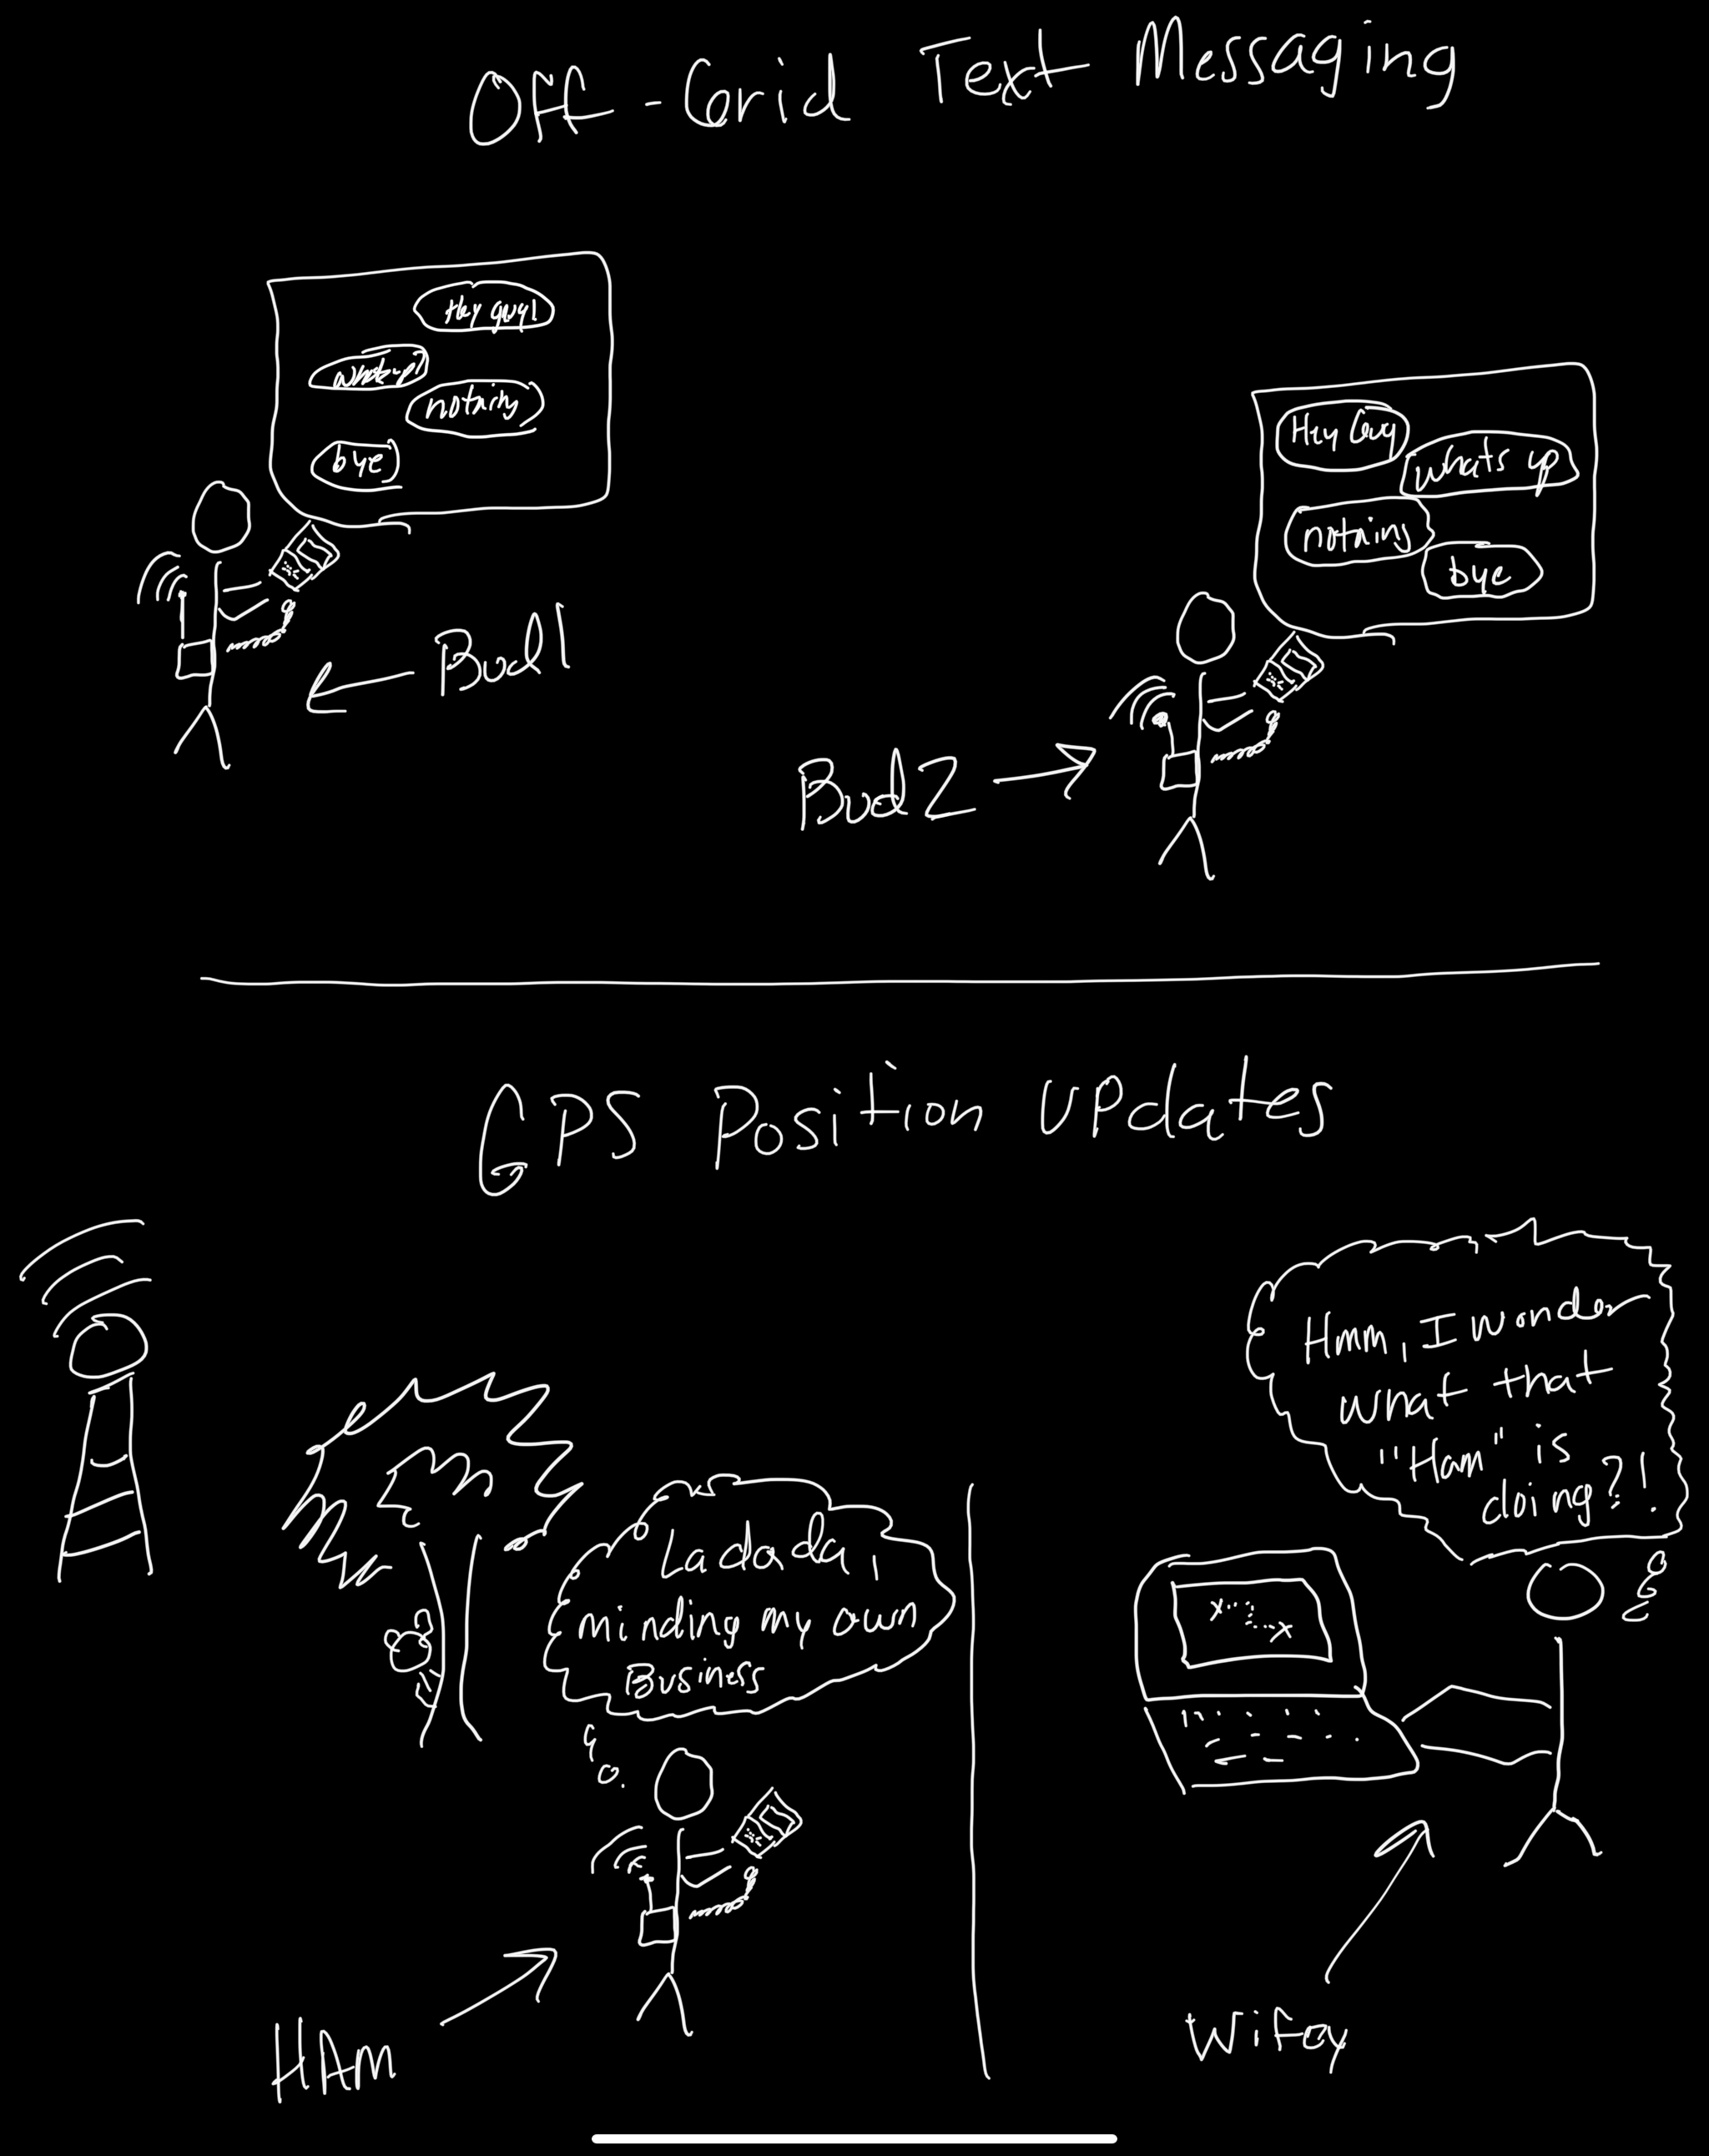 Off-Grid Text Messaging
Hey guy!
whats up?
nothing
bye
Bud 1
Hey Guy
whats up
nothing
bye
Bud 2
GPS Position UPdates
Ladada,
minding my own
Business
HAm
Hmm, I wonder
what that
"Ham" is
doing?!
Wifey